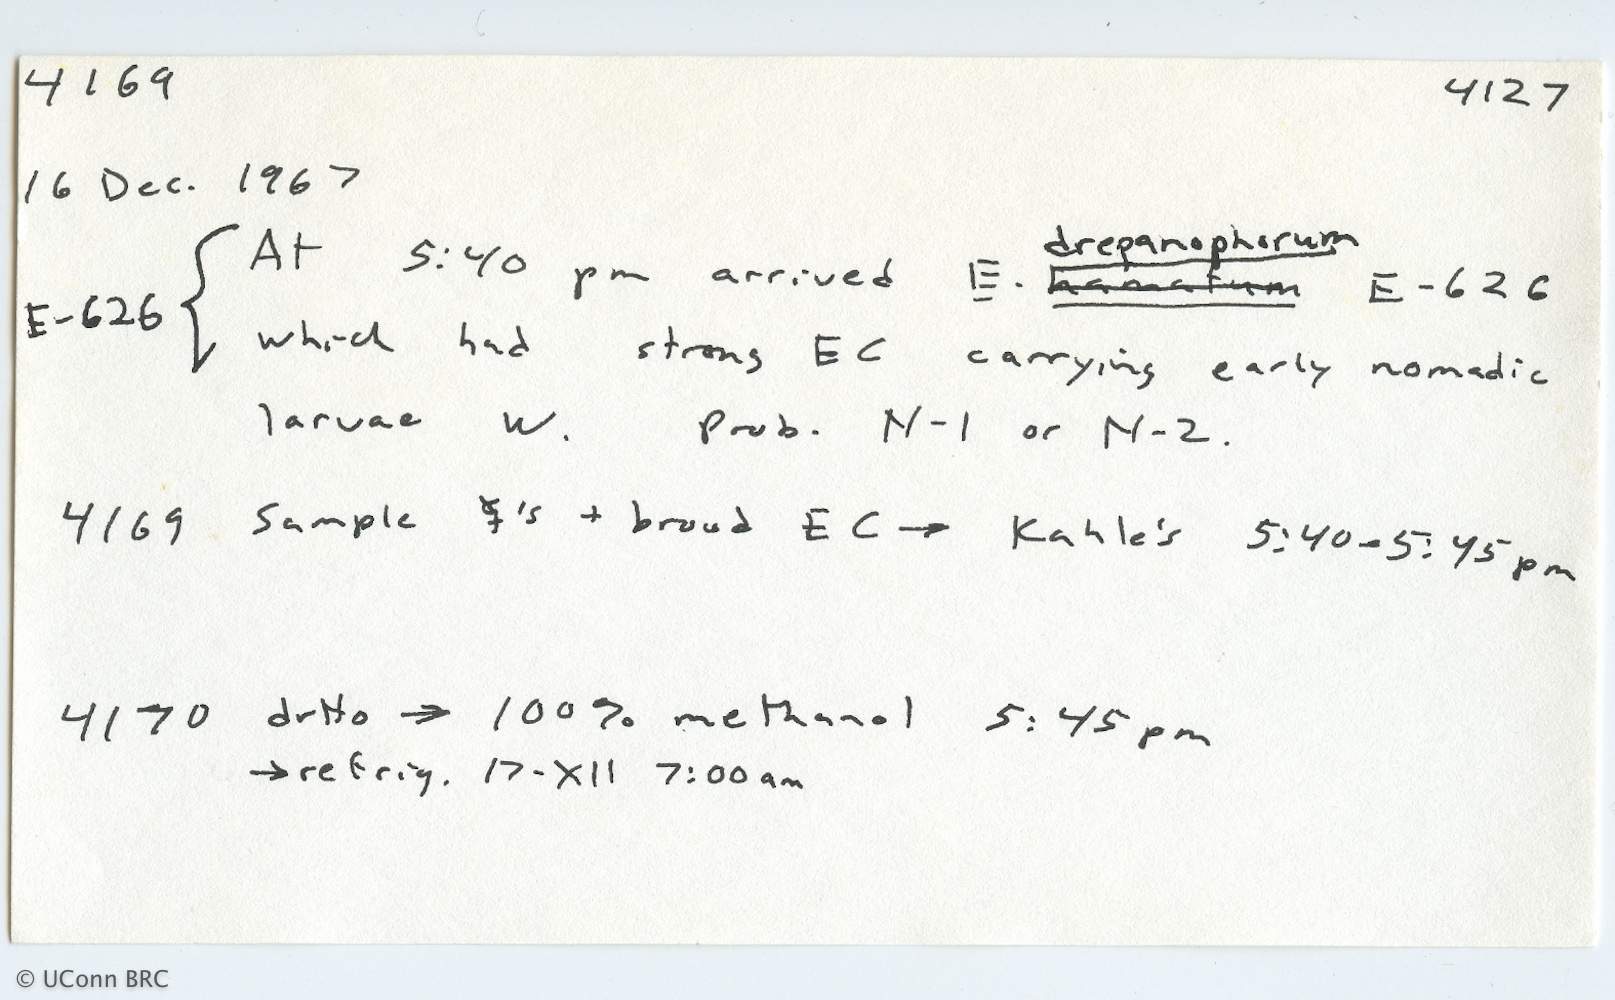 4169 4127
16 Dec. 1967
E-626 { At 5:40 pm arrived E. drepanophorum hamatum E-626
which had strong EC carrying early nomadic
larvae W. Prob. N-1 or N-2.
4169 Sample ☿'s + brood EC → Kahle's 5:40-5:45 pm
4170 ditto → 100% methanol 5:45 pm
→ refrig. 17-XII 7:00 am
© UConn BRC